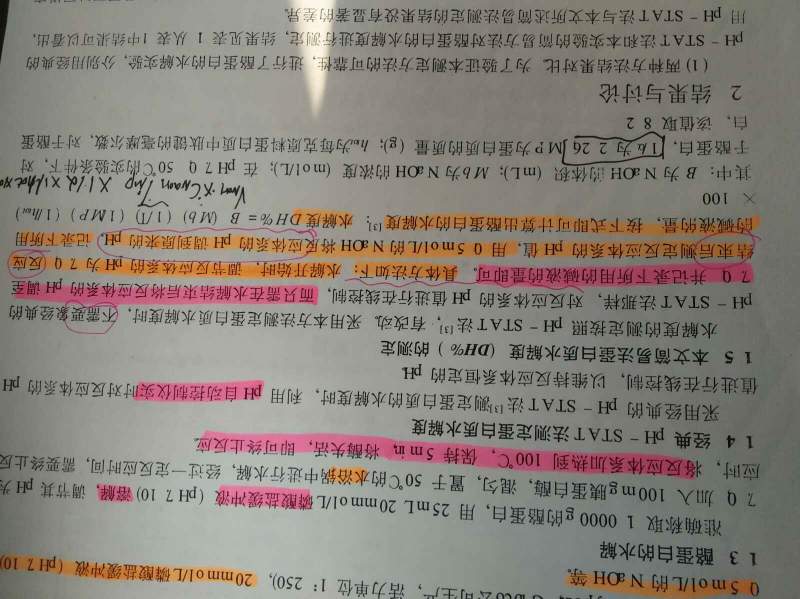 0 5 mol/L 的 NaOH 等。
公司生产, 活力单位 1: 250), 20 mmol/L 磷酸盐缓冲液 (pH 7 10)
1 3 酪蛋白的水解
准确称取 1 0000 g 的酪蛋白, 用 25 mL 20 mmol/L 磷酸盐缓冲液 (pH 7 10) 溶解, 调节其 pH 为
7 0, 加入 100 mg 胰蛋白酶, 混匀, 置于 50 ℃ 的水浴锅中进行水解, 经过一定反应时间, 需要终止反
应时, 将反应体系加热到 100℃, 保持 5 min, 将酶失活, 即可终止反应。
1 4 经典 pH - STAT 法测定蛋白质水解度
采用经典的 pH - STAT 法[3]测定蛋白质的水解度时, 利用 pH 自动控制仪实时对反应体系的 pH
值进行在线控制, 以维持反应体系恒定的 pH。
1 5 本文简易法蛋白质水解度 (DH%) 的测定
水解度的测定按照 pH - STAT 法[3], 有改动。采用本方法测定蛋白质水解度时, 不需要象经典的
pH - STAT 法那样, 对反应体系的 pH 值进行在线控制, 而只需在水解结束后将反应体系的 pH 调至
7 0, 并记录下所用的碱液的量即可。具体方法如下: 水解开始时, 调节反应体系的 pH 为 7 0, 反应
结束后测定反应体系的 pH 值, 用 0 5 mol/L 的 NaOH 将反应体系的 pH 调到原来的 pH, 记录下所用
的碱液的量, 按下式即可计算出酪蛋白的水解度[3]: 水解度 DH% = B (Mb) (1/α) (1/MP) (1/htot)
× 100
其中: B 为 NaOH 的体积 (mL); Mb 为 NaOH 的浓度 (mol/L); 在 pH 7 0, 50 ℃ 的实验条件下, 对
于酪蛋白, 1/α 为 2 26; MP 为蛋白质的质量 (g); htot 为每克原料蛋白质中肽键的毫摩尔数, 对于酪蛋
白, 该值取 8 2
2 结果与讨论
(1) 两种方法结果对比。为了验证本测定方法的可靠性, 进行了酪蛋白的水解实验, 分别用经典的
pH - STAT 法和本实验的简易方法对酪蛋白的水解度进行测定, 结果见表 1。从表 1 中结果可以看出,
用 pH - STAT 法与本文所述简易法测定的结果没有显著的差异.